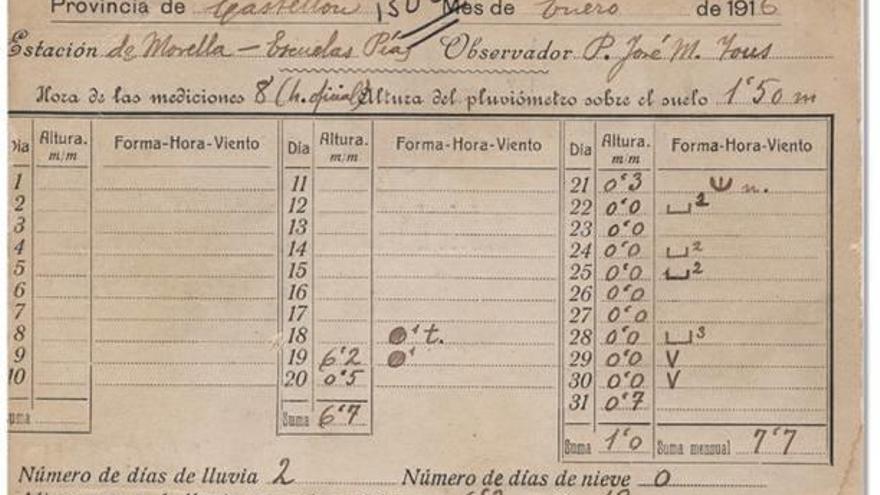 Provincia de Castellón 150 Mes de Enero de 1916
Estación de Morella – Escuelas Pías Observador P. José M. Tous
Hora de las mediciones 8 (h. oficial) Altura del pluviómetro sobre el suelo 1'50 m
Dia Altura. m/m Forma-Hora-Viento Dia Altura. m/m Forma-Hora-Viento Dia Altura. m/m Forma-Hora-Viento
1 11 21 0'3 n.
2 12 22 0'0 2
3 13 23 0'0
4 14 24 0'0 2
5 15 25 0'0 2
6 16 26 0'0
7 17 27 0'0
8 18 1 t. 28 0'0 3
9 19 6'2 1 29 0'0 V
10 20 0'5 30 0'0 V
Suma Suma 6'7 31 0'7
Suma 1'0 Suma mensual 7'7
Número de días de lluvia 2 Número de días de nieve 0